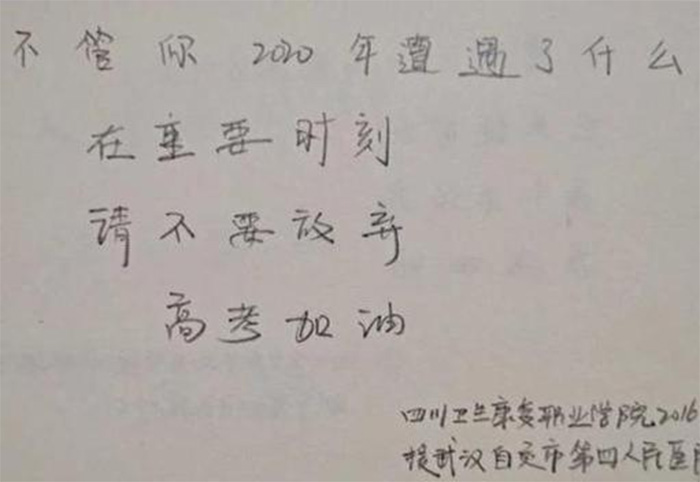 不管你2020年遭遇了什么
在重要时刻
请不要放弃
高考加油
四川卫生康复职业学院2016
援武汉自贡市第四人民医